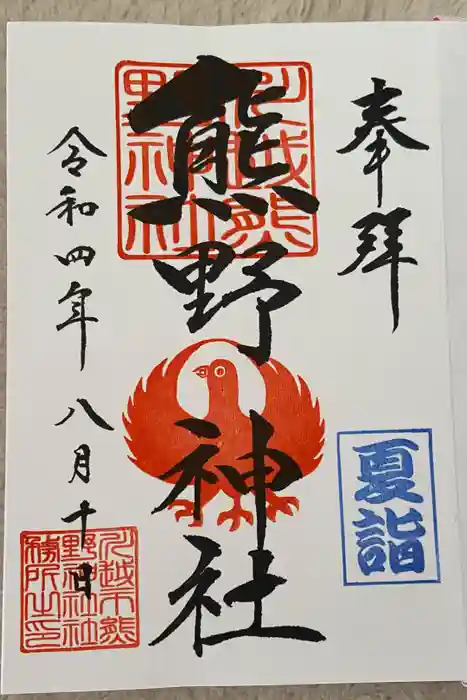 奉拝
夏詣
川越熊
野神社
熊野神社
令和四年八月十日
川越市熊
野神社社
務所之印